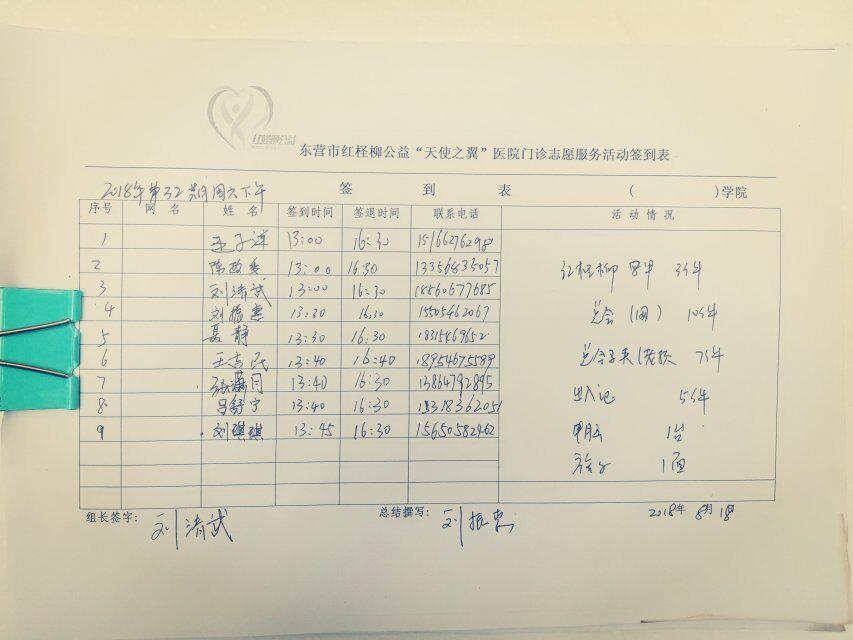 红柽柳公益
东营市红柽柳公益“天使之翼”医院门诊志愿服务活动签到表
2018年第32期周六下午 签 到 表 ( )学院
序号 网 名 姓 名 签到时间 签退时间 联系电话 活 动 情 况
1 13:00 16:30 15166276298
2 陈改香 13:00 16:30 13356433057
3 刘清武 13:00 16:30 18560677685
红柽柳 马甲 3件
4 刘振惠 13:30 16:30 15505462067
总会(国) 10件
5 聂静 13:30 16:30 1831569652
6 王志民 13:40 16:40 18954675589
7 13:40 16:30 13864792895
8 吕舒宁 13:40 16:30 1831836205
出入证 5件
9 刘琪琪 13:45 16:30 15650582462
1台
1面
组长签字: 刘清武 总结撰写: 刘振惠 2018年 8月18